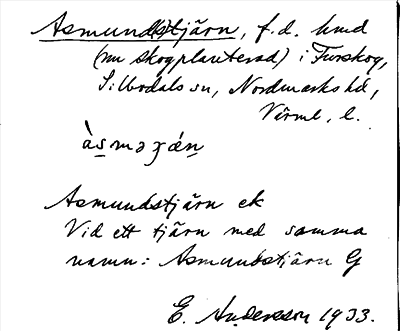 Asmund(s)tjärn, f.d. hmd
(nu skogplanterad) i Furskog,
Silbodals sn, Nordmarks hd,
Värml. l.
Asmundstjärn ek
Vid ett tjärn med samma
namn: Asmundstjärn G
E. Andersson 1933.